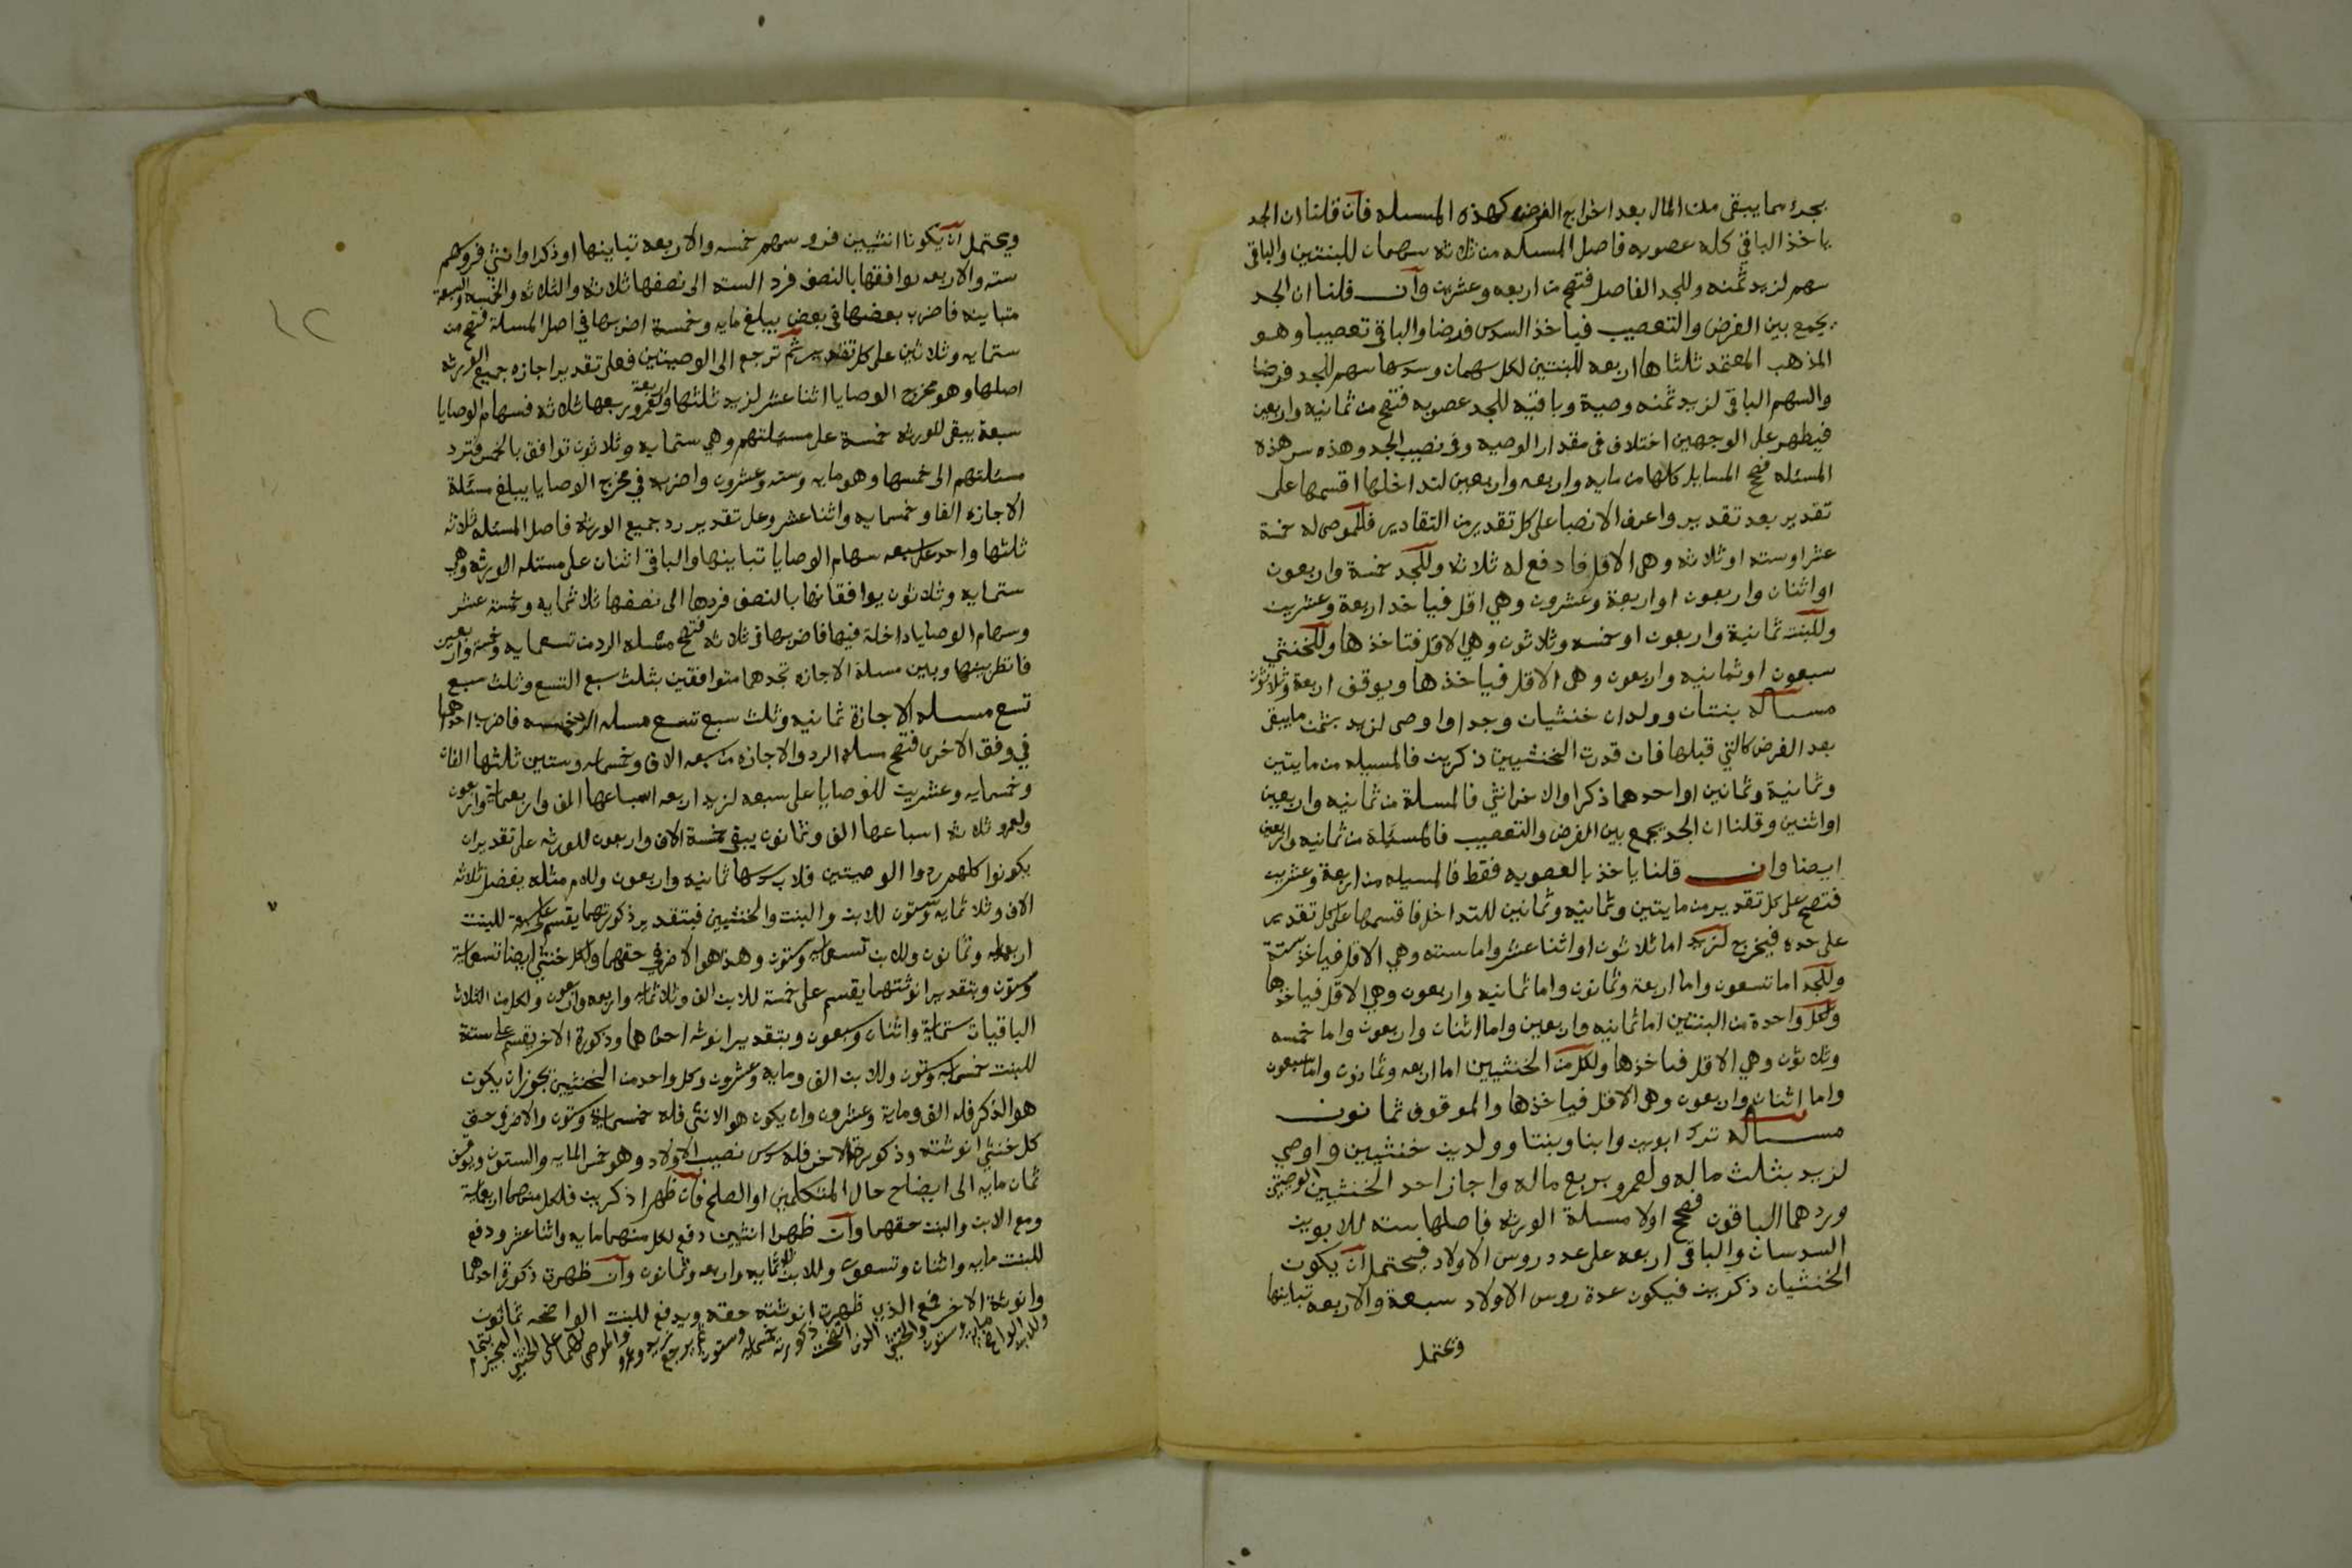 بجزء مما يبقى من المال بعد اخراج الفرض كهذه المسله فان قلنا ان الجد
ياخذ الباقي كله عصوبه فاصل المسله من ثلاثه سهمان للبنتين والباقى
سهم لزيد ثمنه وللجد الفاضل فتصح من اربعه وعشرين وان قلنا ان الجد
يجمع بين الفرض والتعصيب فياخذ السدس فرضا والباقى تعصيبا وهو
المذهب المعتمد ثلثاها اربعه للبنتين لكل سهمان وسدسها سهم للجد فرضا
والسهم الباقى لزيد ثمنه وصية وباقيه للجد عصوبه فتصح من ثمانيه واربعين
فيظهر على الوجهين اختلاف فى مقدار الوصيه وفى نصيب الجد وهذه سر هذه
المسئله فتصح المسايل كلها من مايه واربعه واربعين لتداخلها اقسمها على
تقدير بعد تقدير واعرف الانصبا على كل تقدير من التقادير فللموصى له خمسة
عشر او سته او ثلاثه وهى الاقل فادفع له ثلاثه وللجد خمسة واربعون
او اثنان واربعون او اربعة وعشرون وهي اقل فياخد اربعة وعشرين
وللبنت ثمانية واربعون او خمسه وثلاثون وهي الاقل فتاخذها وللخنثي
سبعون او ثمانيه واربعون وهى الاقل فياخذها ويوقف اربعة وثلاثون
مسـاله بنتان وولدان خنثيان وجد او اوصى لزيد بثمن مايبقى
بعد الفرض كالتي قبلها فان قدرت الخنثيين ذكرين فالمسيله من مايتين
وثمانية وثمانين او احدهما ذكرا والاخر انثي فالمسلة من ثمانيه واربعين
او اثنين وقلنا ان الجد يجمع بين الفرض والتعصيب فالمسئلة من ثمانيه واربعين
ايضا وان قلنا ياخذ بالعصوبه فقط فالمسيله من اربعة وعشرين
فتصح على كل تقدير من مايتين وثمانيه وثمانين للتداخل فاقسمها على كل تقدير
على حده فيخرج لزيد اما ثلاثون او اثنا عشر واما سته وهي الاقل فياخذ ستة
وللجد اما تسعون واما اربعة وثمانون واما ثمانيه واربعون وهي الاقل فياخذها
ولكل واحدة من البنتين اما ثمانيه واربعين واما اثنان واربعون واما خمسه
وثلاثون وهي الاقل فياخذها ولكل من الخنثيين اما اربعه وثمانون واما سبعون
واما اثنان واربعون وهى الاقل فياخذها والموقوف ثمانون
مسـاله ترك ابوين وابنا وبنتا وولدين خنثيين واوصي
لزيد بثلث ماله ولعمرو بربع ماله واجاز احد الخنثيين الوصيتين
وردهما الباقون فصحح اولا مسلة الورثه فاصلها سته للابوين
السدسان والباقى اربعه على عدد روس الاولاد فيحتمل ان يكون
الخنثيان ذكرين فيكون عدة روس الاولاد سبعة والاربعه تباينها
ويحتمل
ويحتمل ان يكونا انثيين فروسهم خمسه والاربعه تباينها او ذكرا وانثي فروسهم
سته والاربعه توافقها بالنصف فرد السته الى نصفها ثلاثه والثلاثه والخمسه والسبعة
متباينه فاضرب بعضها فى بعض يبلغ مايه وخمسة اضربها في اصل المسلة فتصح من
ستمايه وثلاثين على كل تقدير ثم ترجع الى الوصيتين فعلى تقدير اجازه جميع الورثه
اصلها وهو مخرج الوصايا اثنا عشر لزيد ثلثها اربعة ولعمرو ربعها ثلاثه فسهام الوصايا
سبعة يبقى للورثه خمسة على مسئلتهم وهي ستمايه وثلاثون توافق بالخمس فترد
مسئلتهم الى خمسها وهو مايه وسته وعشرون واضربه في مخرج الوصايا يبلغ مسئلة
الاجازه الفا وخمسمايه واثنا عشر وعلى تقدير رد جميع الورثه فاصل المسئله ثلاثه
ثلثها واحد على سبعه سهام الوصايا تباينها والباقى اثنان على مسئله الورثه وهي
ستمايه وثلاثون يوافقانها بالنصف فردها الى نصفها ثلاثمايه وخمسة عشر
وسهام الوصايا داخلة فيها فاضربها فى ثلاثه فتصح مسئله الرد من تسعمايه وخمسة واربعين
فانظر بينها وبين مسئلة الاجازه تجدهما متوافقين بثلث سبع التسع وثلث سبع
تسع مسله الاجازة ثمانيه وثلث سبع تسع مسله الرد خمسه فاضرب احداهما
في وفق الاخرى فتصح مسله الرد والاجازه من سبعه الاف وخمسمايه وستين ثلثها الفان
وخمسمايه وعشرين للوصايا على سبعه لزيد اربعه اسباعها الف واربعماية واربعون
ولعمرو ثلاثه اسباعها الف وثمانون يبقى خمسة الاف واربعون للورثه على تقدير ان
يكونوا كلهم ردوا الوصيتين فلاب سدسها ثمانيه واربعون وللام مثله يفضل ثلاثه
الاف وثلاثمايه وستون للابن والبنت والخنثيين فبتقدير ذكورتهما يقسم على سبعة للبنت
اربعمايه وثمانون وللابن تسعمايه وستون وهذا هو الاضر في حقهما ولكل خنثي ايضا تسعماية
وستون وبتقدير انوثتهما يقسم على خمسة للابن الف وثلاثمايه واربعه واربعون ولكل من الثلاث
الباقيات ستماية واثنان وسبعون وبتقدير انوثه احداهما وذكورة الاخر يقسم على ستة
للبنت خمسمايه وستون وللابن الف ومايه وعشرون وكل واحد من الخنثيين يجوز ان يكون
هو الذكر فله الف وماية وعشرون وان يكون هو الانثى فله خمسماية وستون والاضر فى حق
كل خنثي انوثته وذكورة الاخر فله سدس نصيب الاولاد وهو خمس المايه والستون ويوقف
ثمان مايه الى ايضاح حال المشكلين او الصلح فان ظهرا ذكرين فلكل منهما اربعماية
ومع الابن والبنت حقهما وان ظهرا انثيين دفع لكل منهما مايه واثنا عشر ودفع
للبنت مايه واثنان وتسعون وللابن ثلاثمايه واربعه وثمانون وان ظهرت ذكورة احدهما
وانوثة الاخر فمع الذى ظهرت انوثته حقه ويدفع للبنت الواضحه ثمانون
وللابن الواضح مايه وستون والخنثي الذى اتضحت ذكورته خمسمايه وستون ثم يرجع زيد وعمرو والموصى لهما على الخنثي المجيز
١٢